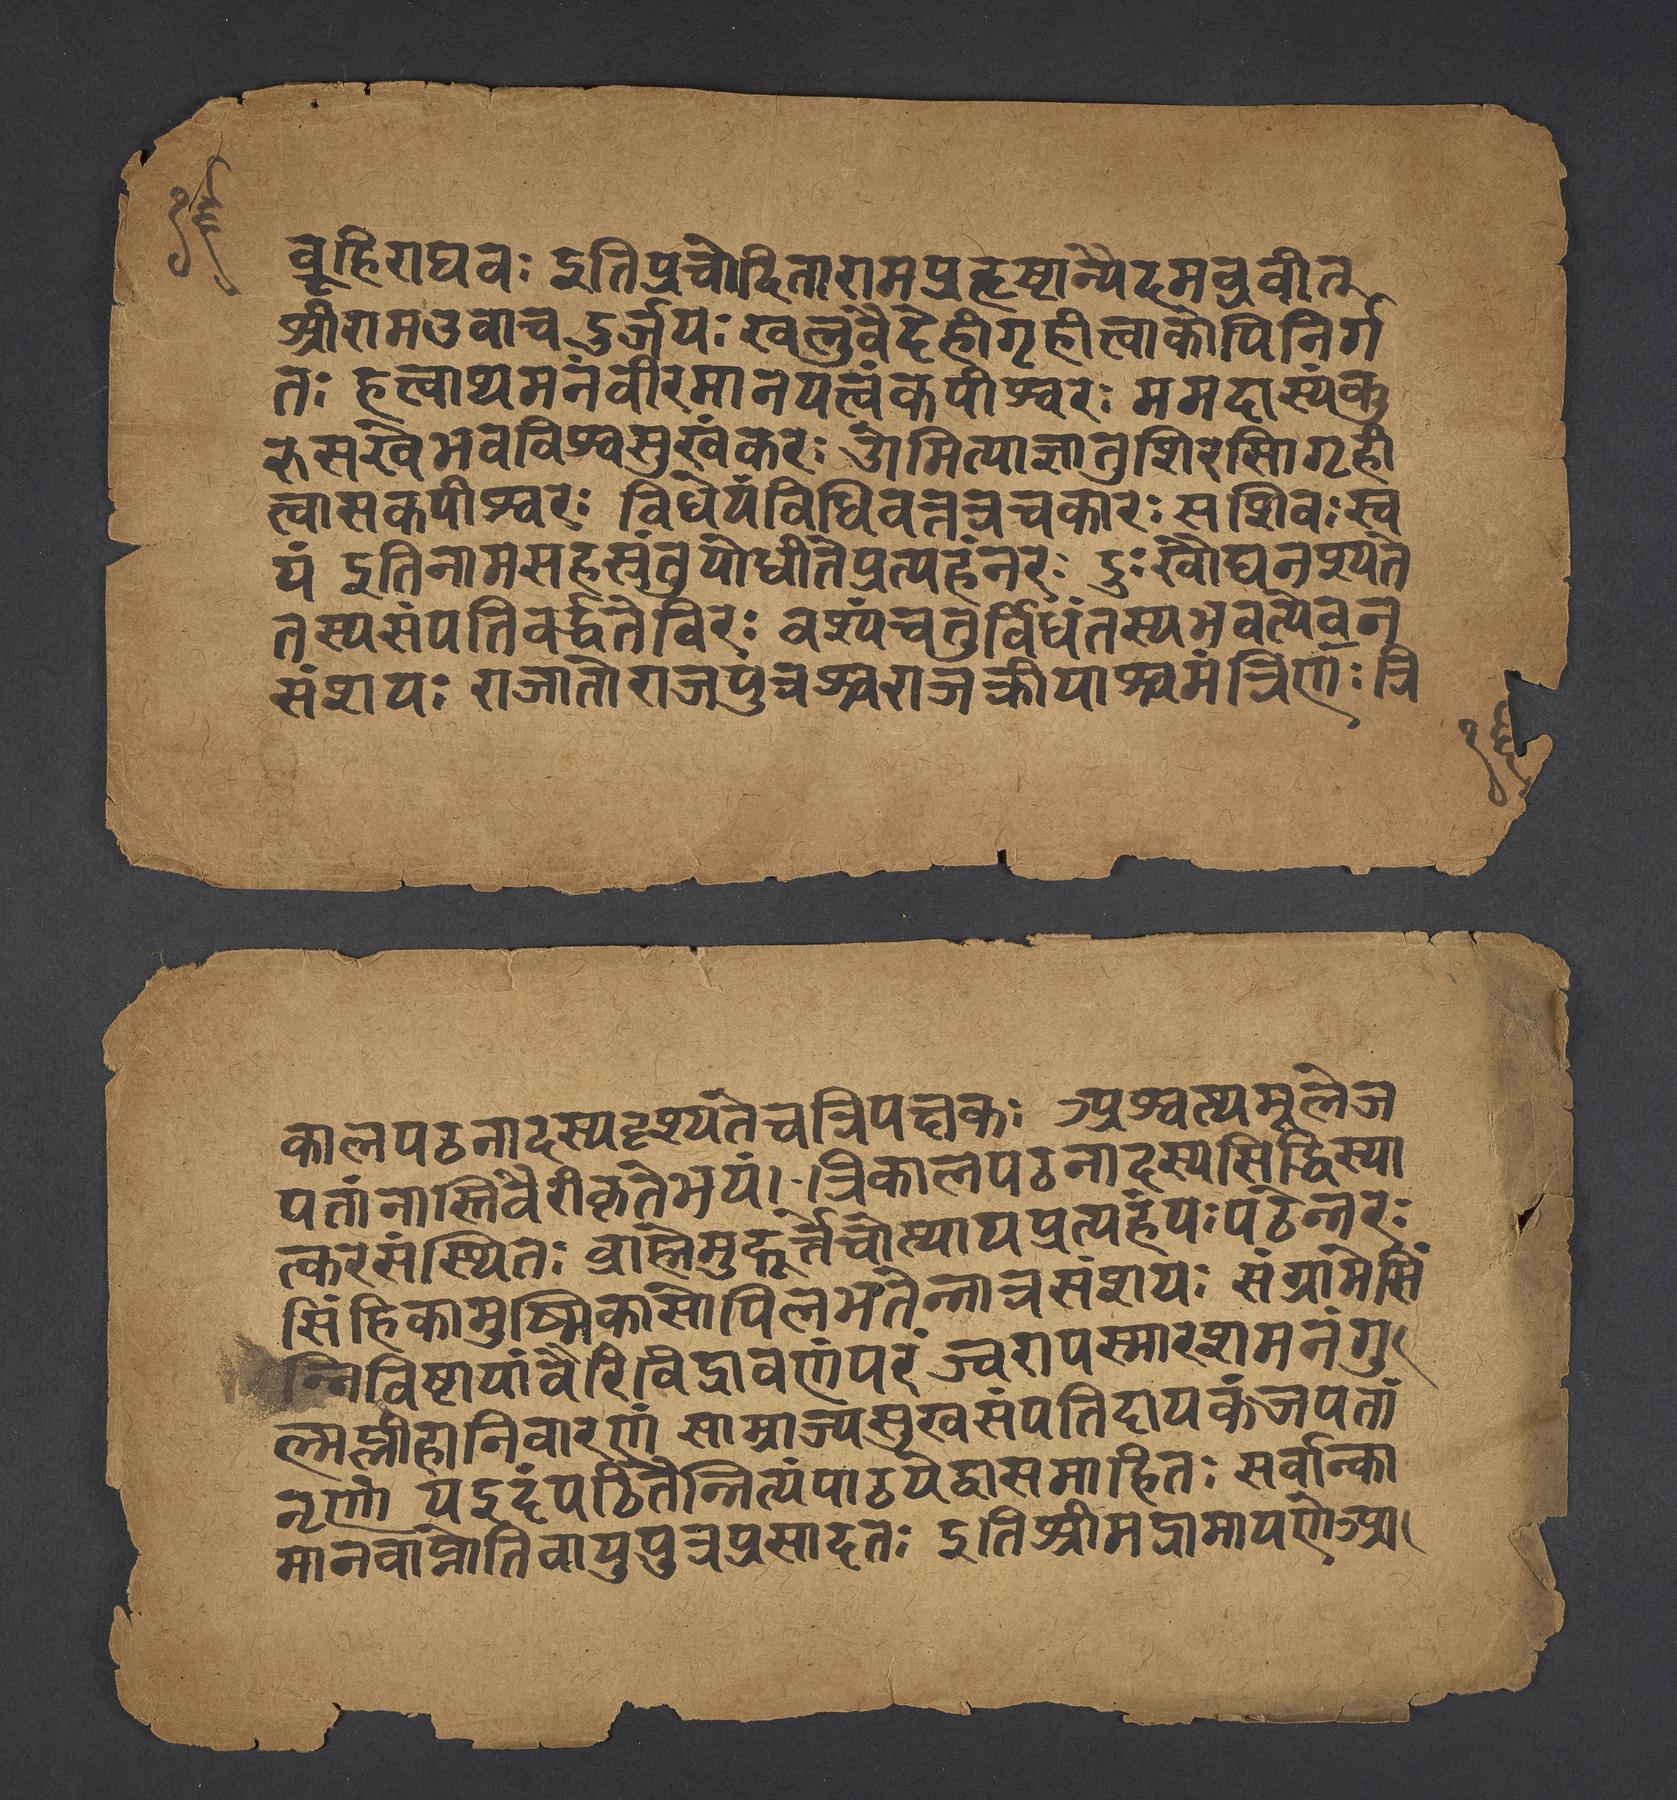 ब्रूहिराघवः इतिप्रचोदितारामप्रहृष्टान्यैदमब्रवीत
श्रीरामउवाच दुर्जयः खलुवैदेहीगृहीत्वाकोपिनिर्ग
तः हत्वाथमनंवीरमानयत्वंकपीश्वरः ममदास्यंकु
रुसखेभवविश्वसुखंकरः ओमित्याज्ञातुशिरसागृही
त्वासकपीश्वरः विधेयंविधिवतत्रचकारः सशिवः स्व
यं इतिनामसहस्रंतुयोधीतेप्रत्यहंनरः दुःखौघनश्यते
तस्यसंपतिवर्द्धतेविरः वश्यंचतुर्विधंतस्यभवत्येवन
संशयः राजातोराजपुत्रश्चराजकीयाश्चमंत्रिणंः त्रि
कालपठनादस्यदृश्यतेचत्रिपक्षकः अश्वत्थमूलेज
पतांनास्तिवैरीकृतेभयं।-।त्रिकालपठनादस्यसिद्धिस्या
त्करसंस्थितः ब्राह्मेमुहूर्त्तेचोत्थायप्रत्यहंयःपठेन्नरः
सिंहिकामुष्मिकासोपिलभतेन्नात्रसंशयः संग्रामेसिं
न्निविष्टायांवैरिविद्रावणंपरं ज्वरापस्मारशमनंगु
ल्मप्लीहानिवारणं साम्राज्यसुखसंपतिदायकंजपतां
नृणां यइदंपठितेन्नित्यंपाठयेद्वासमाहितः सर्वान्का
मानवाप्नोतिवायुपुत्रप्रसादतः इतिश्रीमद्रामायणेआ